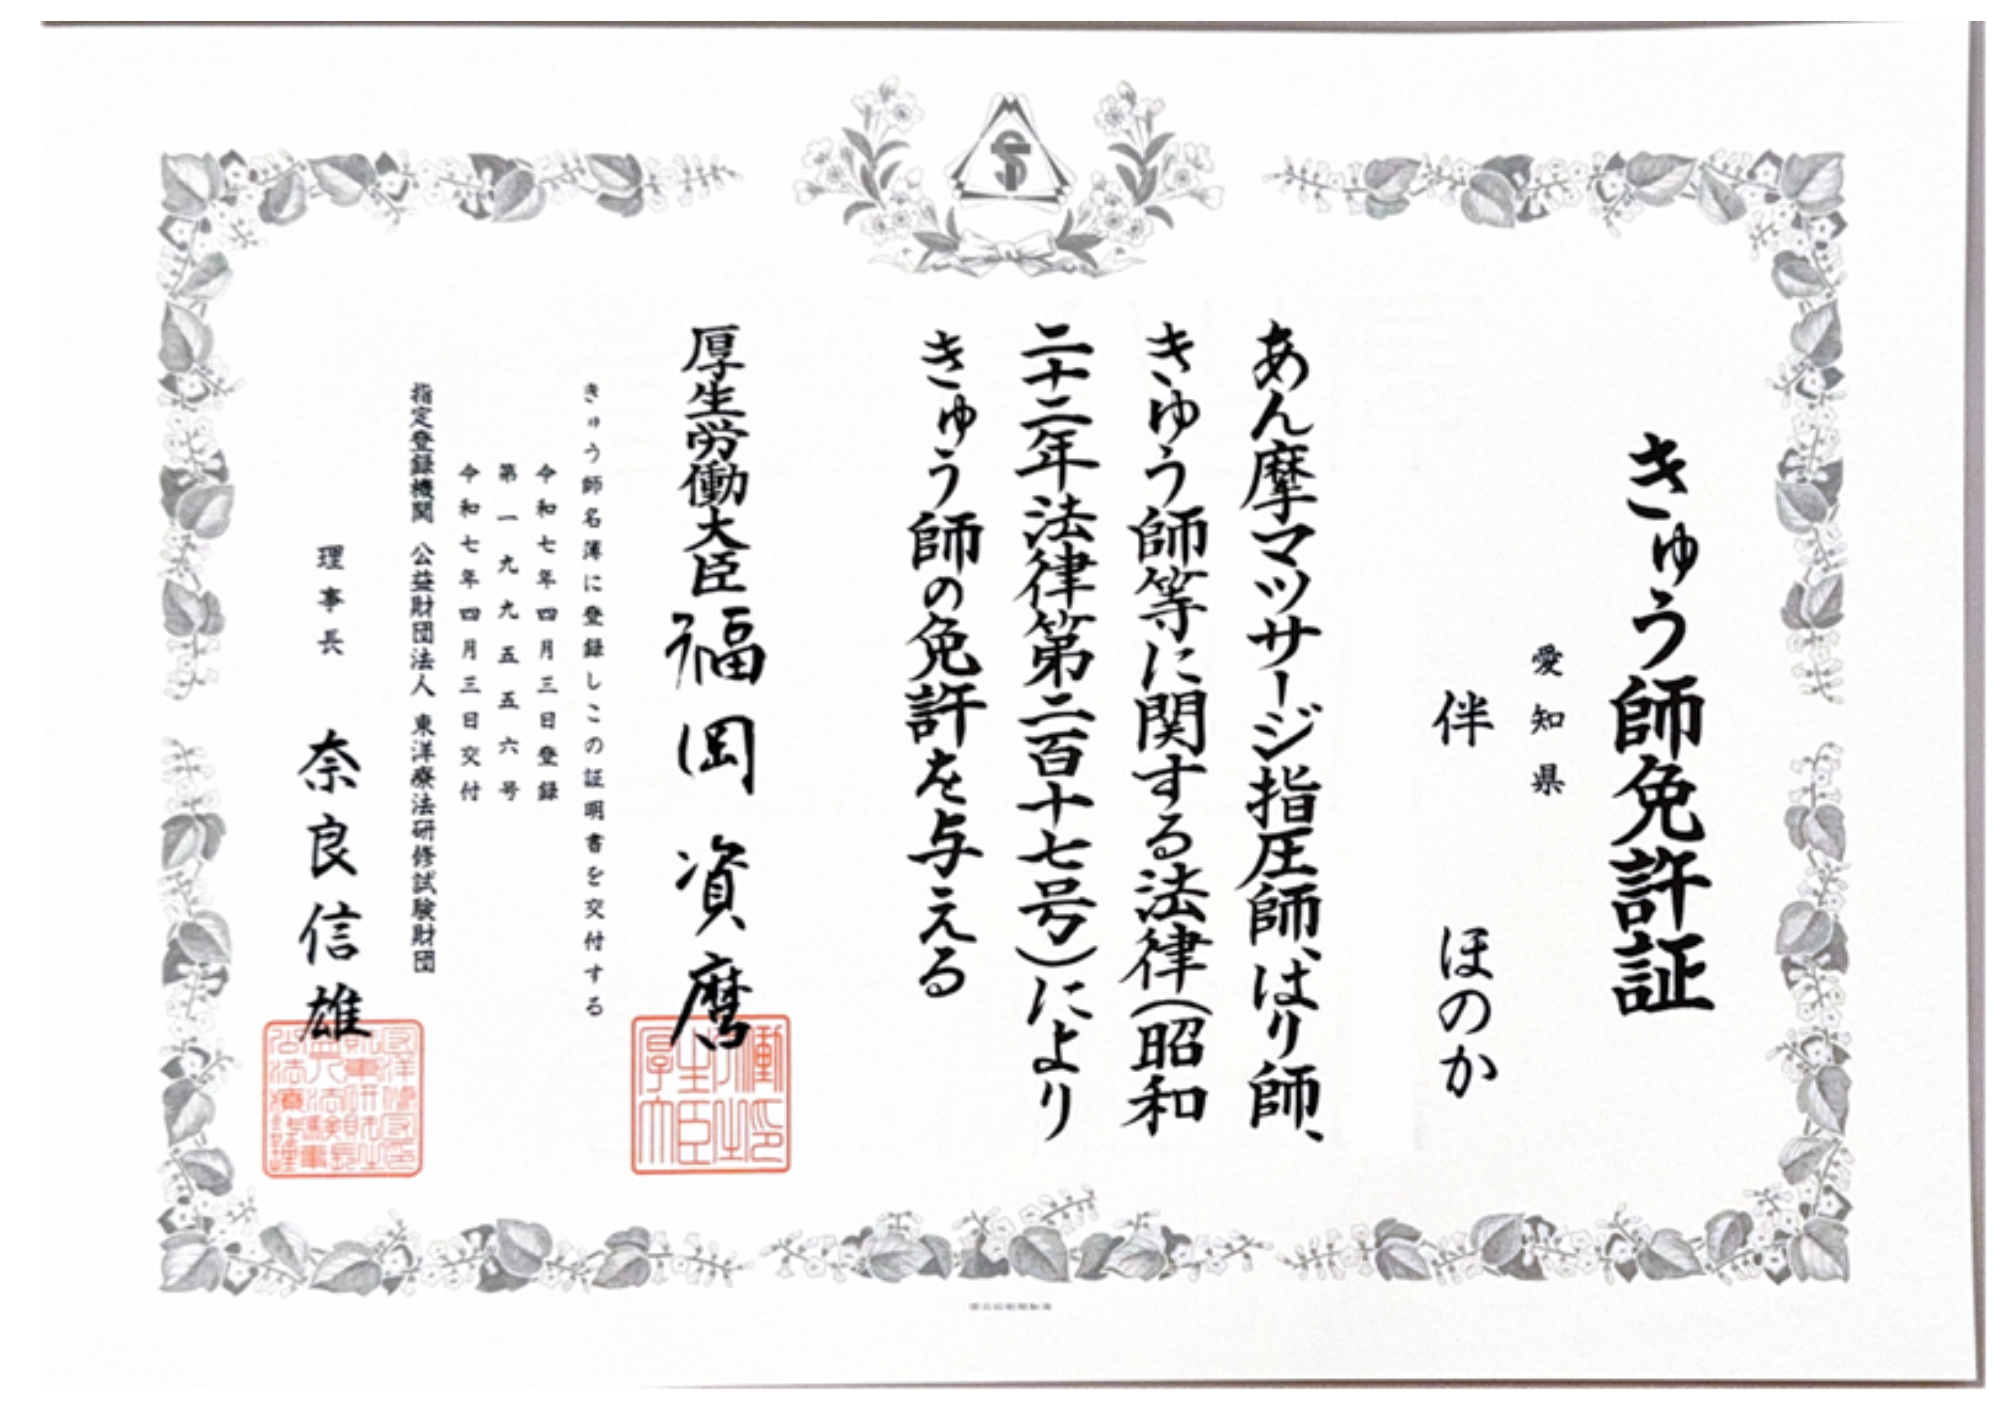 きゅう師免許証
愛知県
伴 ほのか
あん摩マツサージ指圧師、はり師、
きゆう師等に関する法律(昭和
二十二年法律第二百十七号)により
きゅう師の免許を与える
厚生労働大臣 福岡資麿
きゅう師名簿に登録しこの証明書を交付する
令和七年四月三日登録
第一九九五五六号
令和七年四月三日交付
指定登録機関 公益財団法人 東洋療法研修試験財団
理事長 奈良信雄